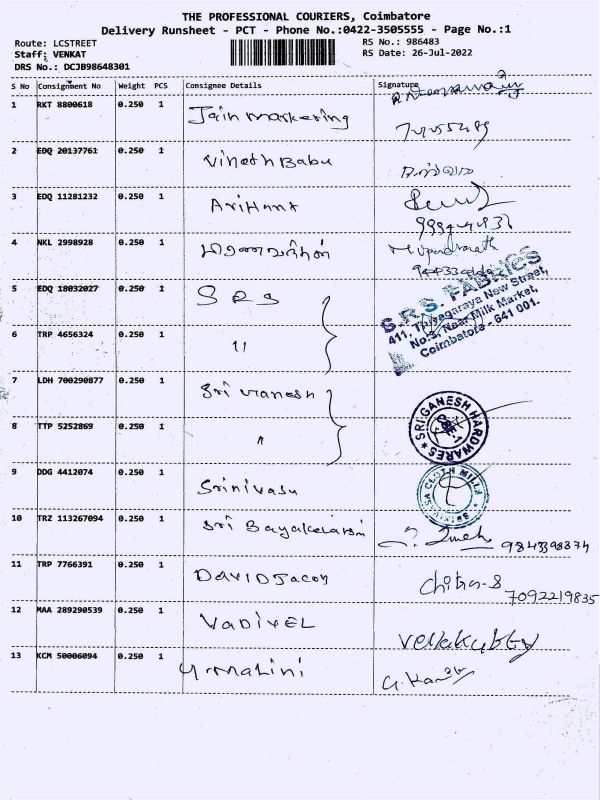 THE PROFESSIONAL COURIERS, Coimbatore
Delivery Runsheet - PCT - Phone No.:0422-3505555 - Page No.:1
Route: LCSTREET
RS No.: 986483
Staff: VENKAT
RS Date: 26-Jul-2022
DRS No.: DCJB98648301
S No Consignment No Weight PCS Consignee Details Signature
1 RKT 8800618 0.250 1 Jain Marketing
2 EDQ 20137761 0.250 1 Vineth Babu
3 EDQ 11281232 0.250 1 Arihant
4 NKL 2998928 0.250 1
5 EDQ 18032027 0.250 1 S R S
S.R.S. FABRICS
411, Thiyagaraya New Street,
No.3, Near Milk Market,
Coimbatore - 641 001.
6 TRP 4656324 0.250 1 11
7 LDH 700290877 0.250 1 Sri Ganesh
SRI GANESH HARDWARES
8 TTP 5252869 0.250 1 "
9 DDG 4412074 0.250 1 Srinivasu
SRINIVASA CLOTH MILLS
10 TRZ 113267094 0.250 1 Sri
11 TRP 7766391 0.250 1 DAVID Jacob Chitra-S
7092219835
12 MAA 289290539 0.250 1 VADIVEL Vellakutty
13 KCM 50006094 0.250 1 Y malini